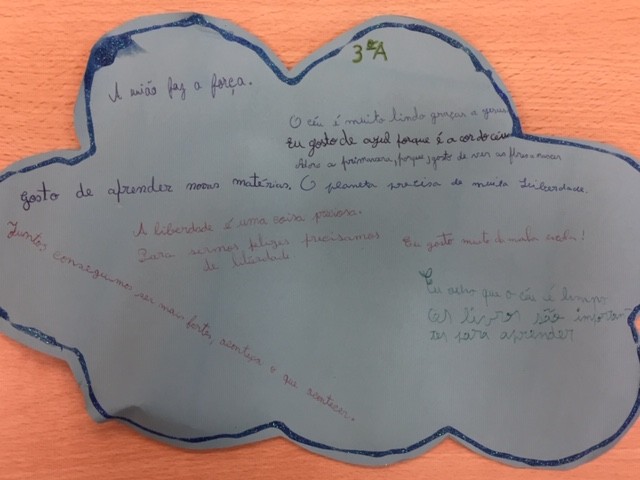 3ºA
A união faz a força.
O céu é muito lindo graças a
Eu gosto de azul porque é a cor do céu
Adoro a primavera, porque, gosto de ver as flores a nascer
Gosto de aprender novas matérias.
O planeta precisa de muita Liberdade.
A liberdade é uma coisa preciosa.
Para sermos felizes precisamos
de liberdade
Eu gosto muito da minha escola!
Juntos conseguimos ser mais fortes, aconteça o que acontecer.
Eu acho que o céu é limpo
Os livros são importan
tes para aprender